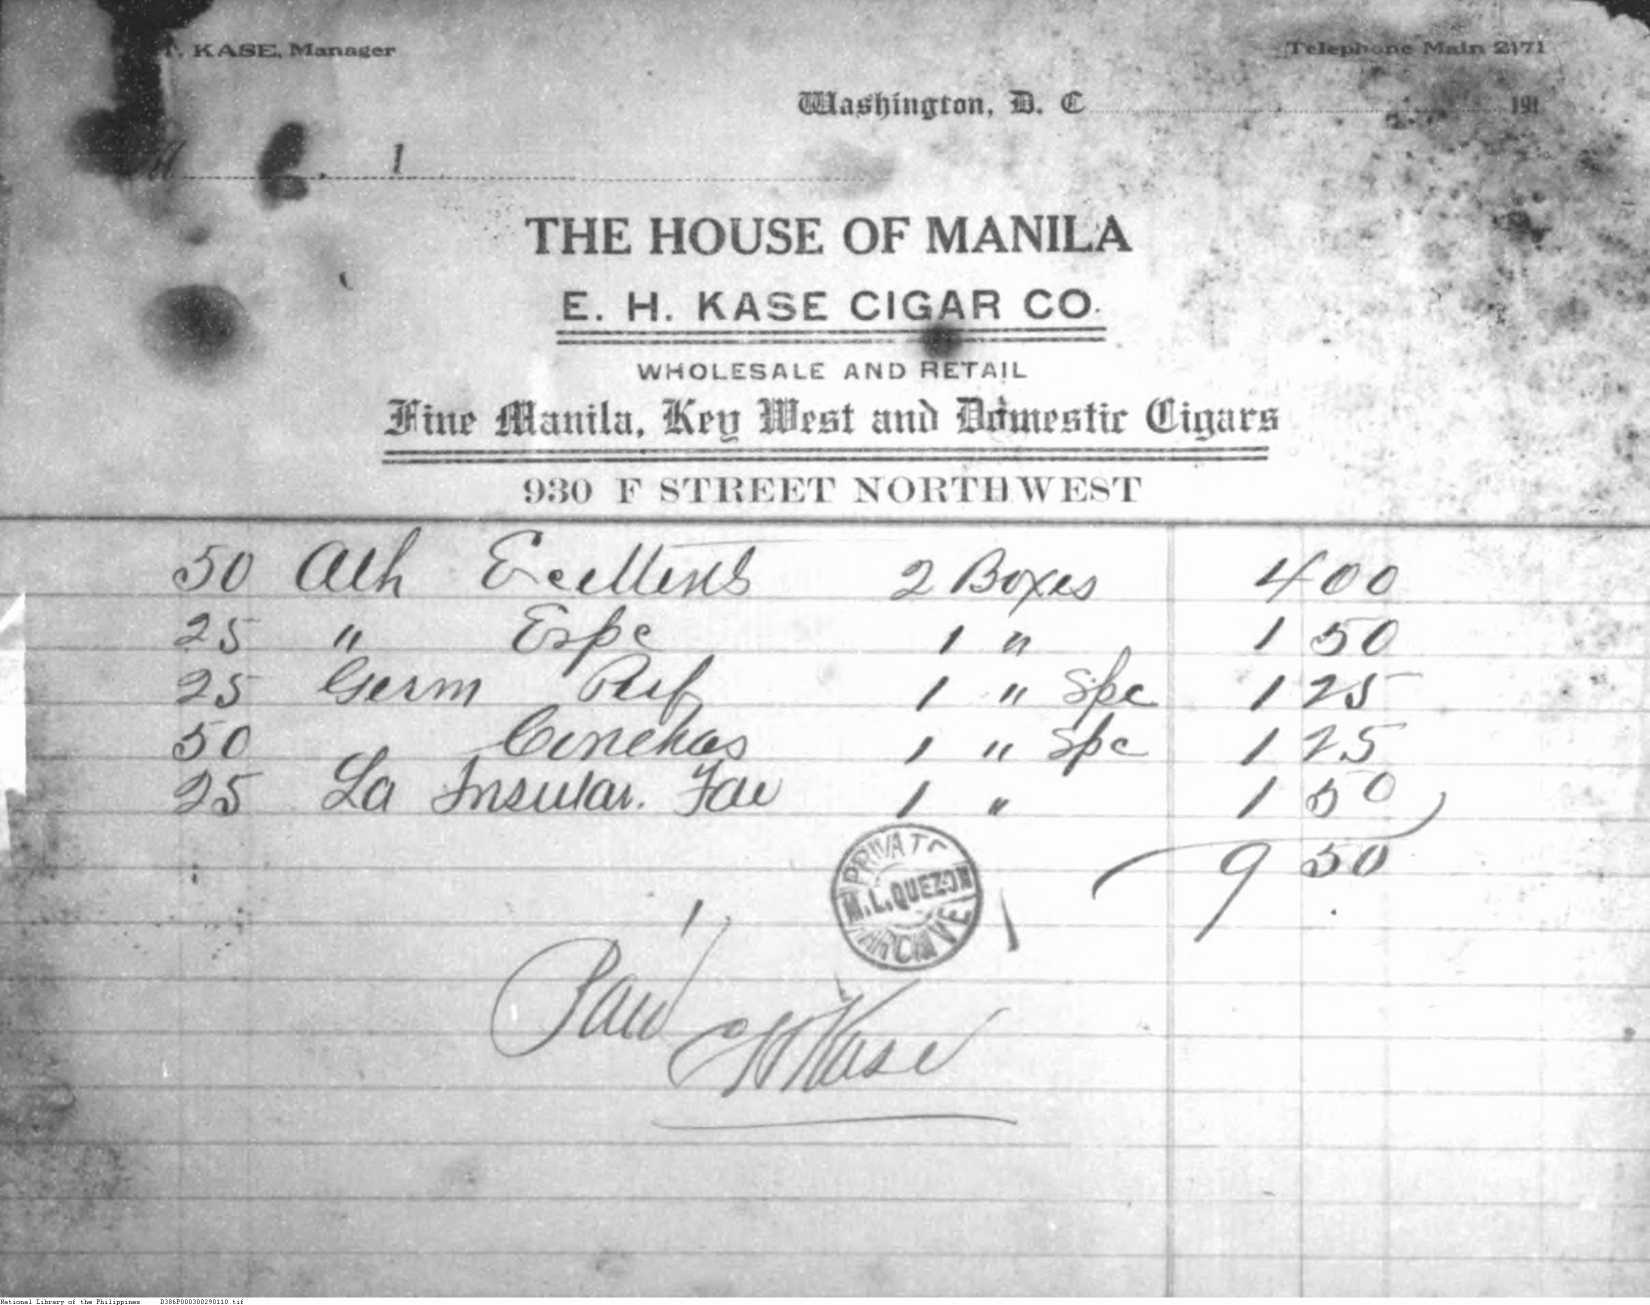 KASE, Manager
Telephone Main 2171
Washington, D. C 191
THE HOUSE OF MANILA
E. H. KASE CIGAR CO.
WHOLESALE AND RETAIL
Fine Manila, Key West and Domestic Cigars
930 F STREET NORTHWEST
50 Alh 2 Boxes 4 00
25 " Espc 1 " 1 50
25 Germ 1 " Spc 1 25
50 Conchas 1 " Spc 1 25
25 La Insular. Fav 1 " 1 50
9 50
PRIVATE
M.L.QUEZON
ARCHIVE
Paid EH Kase
National Library of the Philippines D386P000300290110.tif